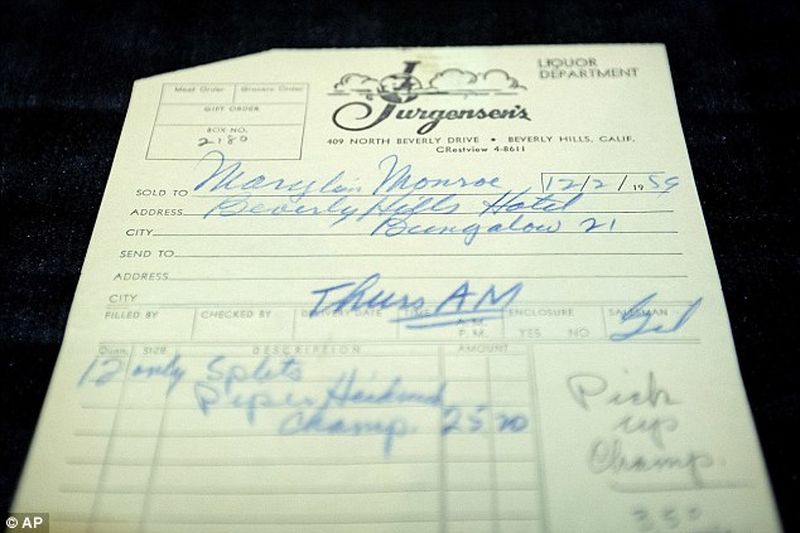 LIQUOR
DEPARTMENT
Meat Order Grocery Order
GIFT ORDER
BOX NO.
2180
Jurgensen's
409 NORTH BEVERLY DRIVE • BEVERLY HILLS, CALIF.
CRestview 4-8611
SOLD TO Marylin Monroe 12/2/1959
ADDRESS Beverly Hills Hotel
CITY Bungalow 21
SEND TO
ADDRESS
CITY Thurs AM
FILLED BY CHECKED BY DELIVERY DATE TIME ENCLOSURE SALESMAN
A.M.
P.M. YES NO
Quan. SIZE DESCRIPTION AMOUNT
12 only Splits
Piper Heidsieck
Champ. 25 20
Pick
up
Champ.
© AP